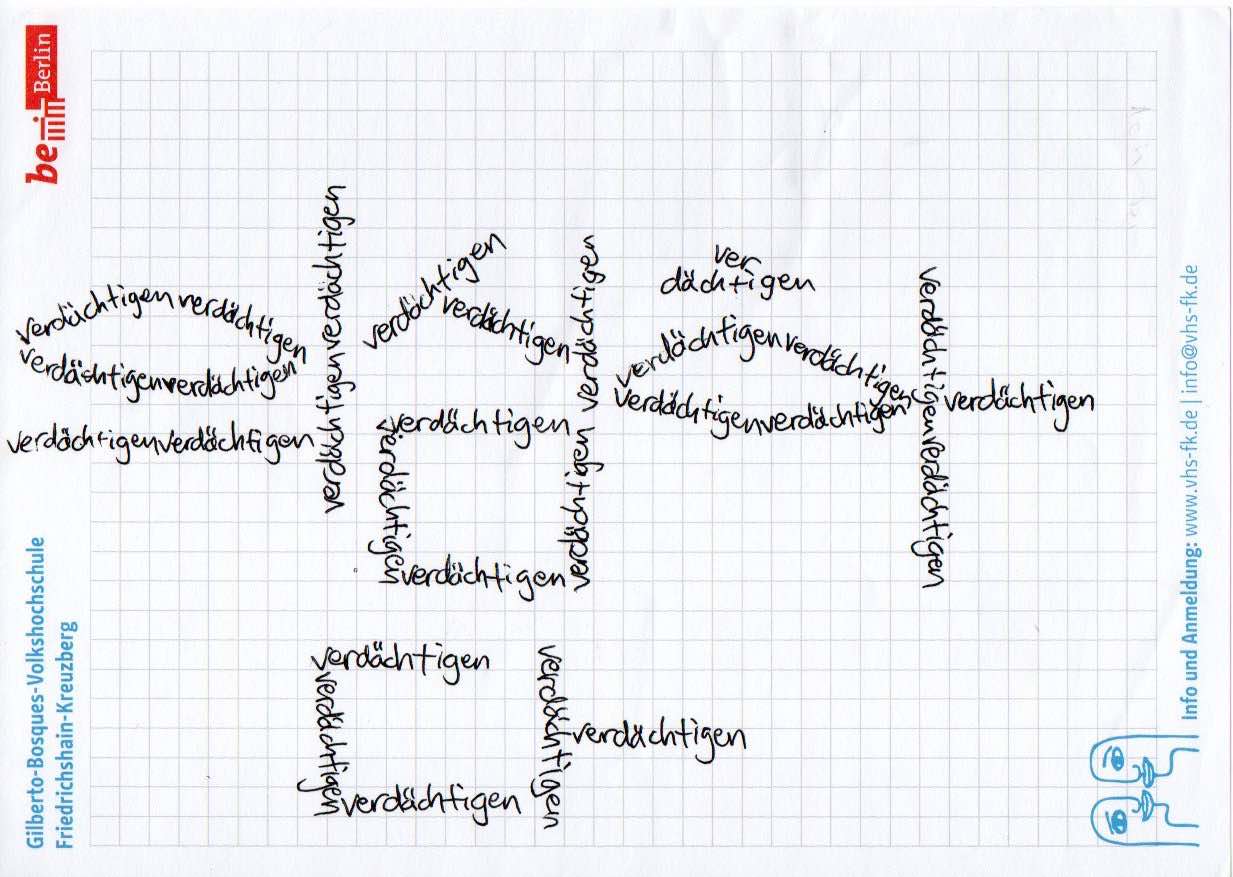 be Berlin
ver
dächtigen
verdächtigenverdächtigen
verdächtigen
verdächtigen
verdächtigen verdächtigen
verdächtigenverdächtigen
verdächtigenverdächtigen
verdäshtigenverdächtigen
verdächtigenverdächtigen
verdächtigenverdächtigen
verdächtigenverdächtigen
verdächtigenverdächtigen
verdächtigen
verdächtigen
verdächtigen
verdächtigen
verdächtigen
verdächtigen
verdächtigen
verdächtigen
verdächtigen
Gilberto-Bosques-Volkshochschule
Friedrichshain-Kreuzberg
Info und Anmeldung: www.vhs-fk.de | info@vhs-fk.de